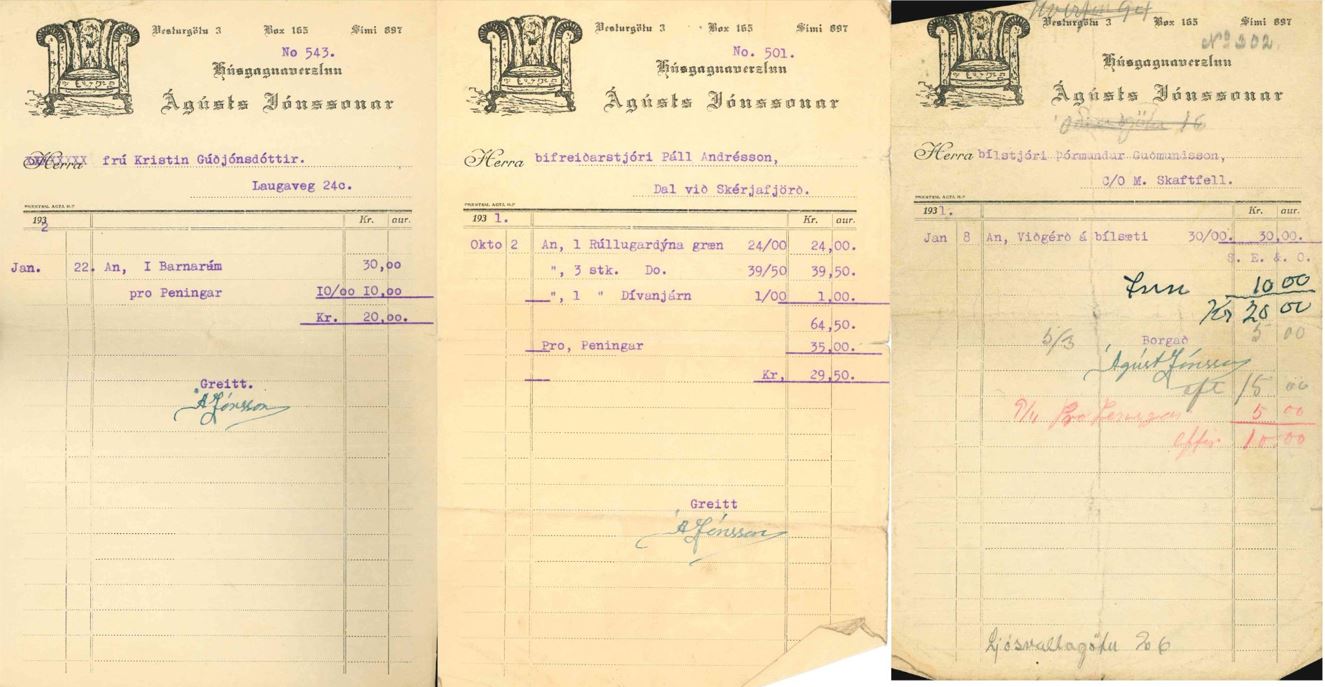 Vesturgötu 3 Box 165 Sími 897
No 543.
Húsgagnaverzlun
Ágústs Jónssonar
Herra frú Kristin Gúðjónsdóttir.
Laugaveg 24c.
PRENTSM. ACTA H.F
1932 Kr. aur.
Jan. 22. An, I Barnarúm 30,oo
pro Peningar 10/oo 10,oo
Kr. 20,oo.
Greitt.
Á Jónsson
Vesturgötu 3 Box 165 Sími 897
No. 501.
Húsgagnaverzlun
Ágústs Jónssonar
Herra bifreiðarstjóri Páll Andrésson,
Dal við Skérjafjörð.
PRENTSM. ACTA H.F
1931. Kr. aur.
Okto 2 An, 1 Rúllugardýna græn 24/00 24,00.
", 3 stk. Do. 39/50 39,50.
", 1 " Dívanjárn 1/00 1,00.
64,50.
Pro, Peningar 35,00.
Kr, 29,50.
Greitt
Á Jónsson
Vesturgötu 3 Box 165 Sími 897
No 302
Húsgagnaverzlun
Ágústs Jónssonar
16
Herra bílstjóri Þórmundur Guðmundsson,
C/O M. Skaftfell.
PRENTSM. ACTA H.F
1931. Kr. aur.
Jan 8 An, Viðgérð á bílsæti 30/00. 30,00.
S. E. & O.
Inn 10 00
Kr 20 00
5/3 Borgað 5 00
Ágúst Jónsson
eft 15 00
9/4 Pro Peningar 5 00
eftir 10 00
Ljósvallagötu 26